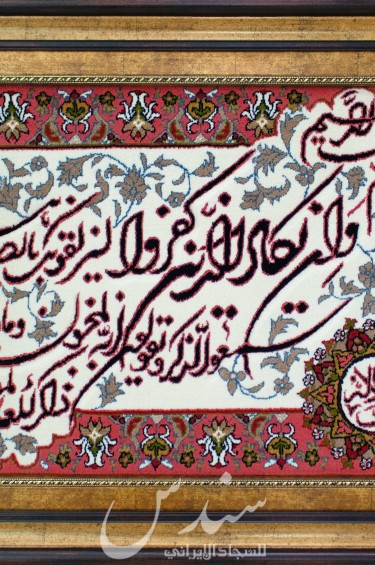 الرحیم
وان یکاد الذین کفروا لیزلقونک بابصا
سمعوا الذکر و یقولون انه لمجنون وما
ذکر للعا
سندس
للسجاد الإيراني